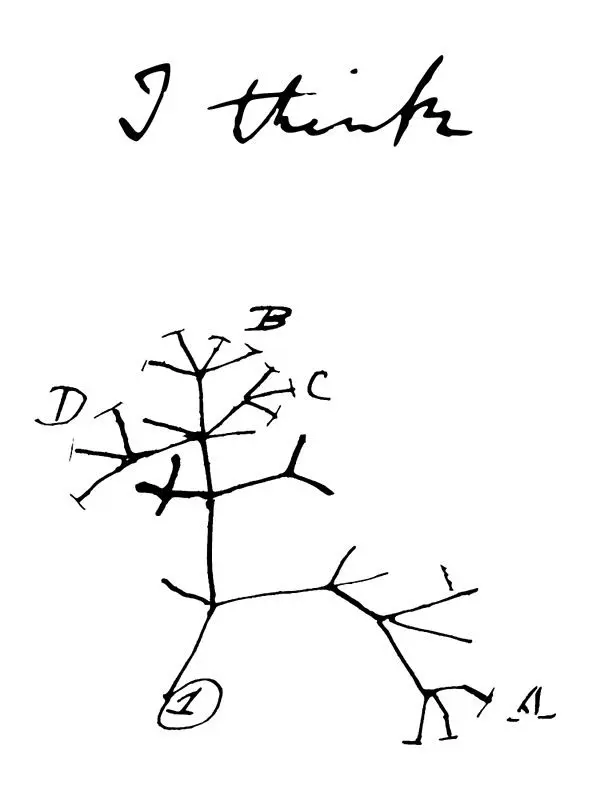 I think
B
C
D
A
1